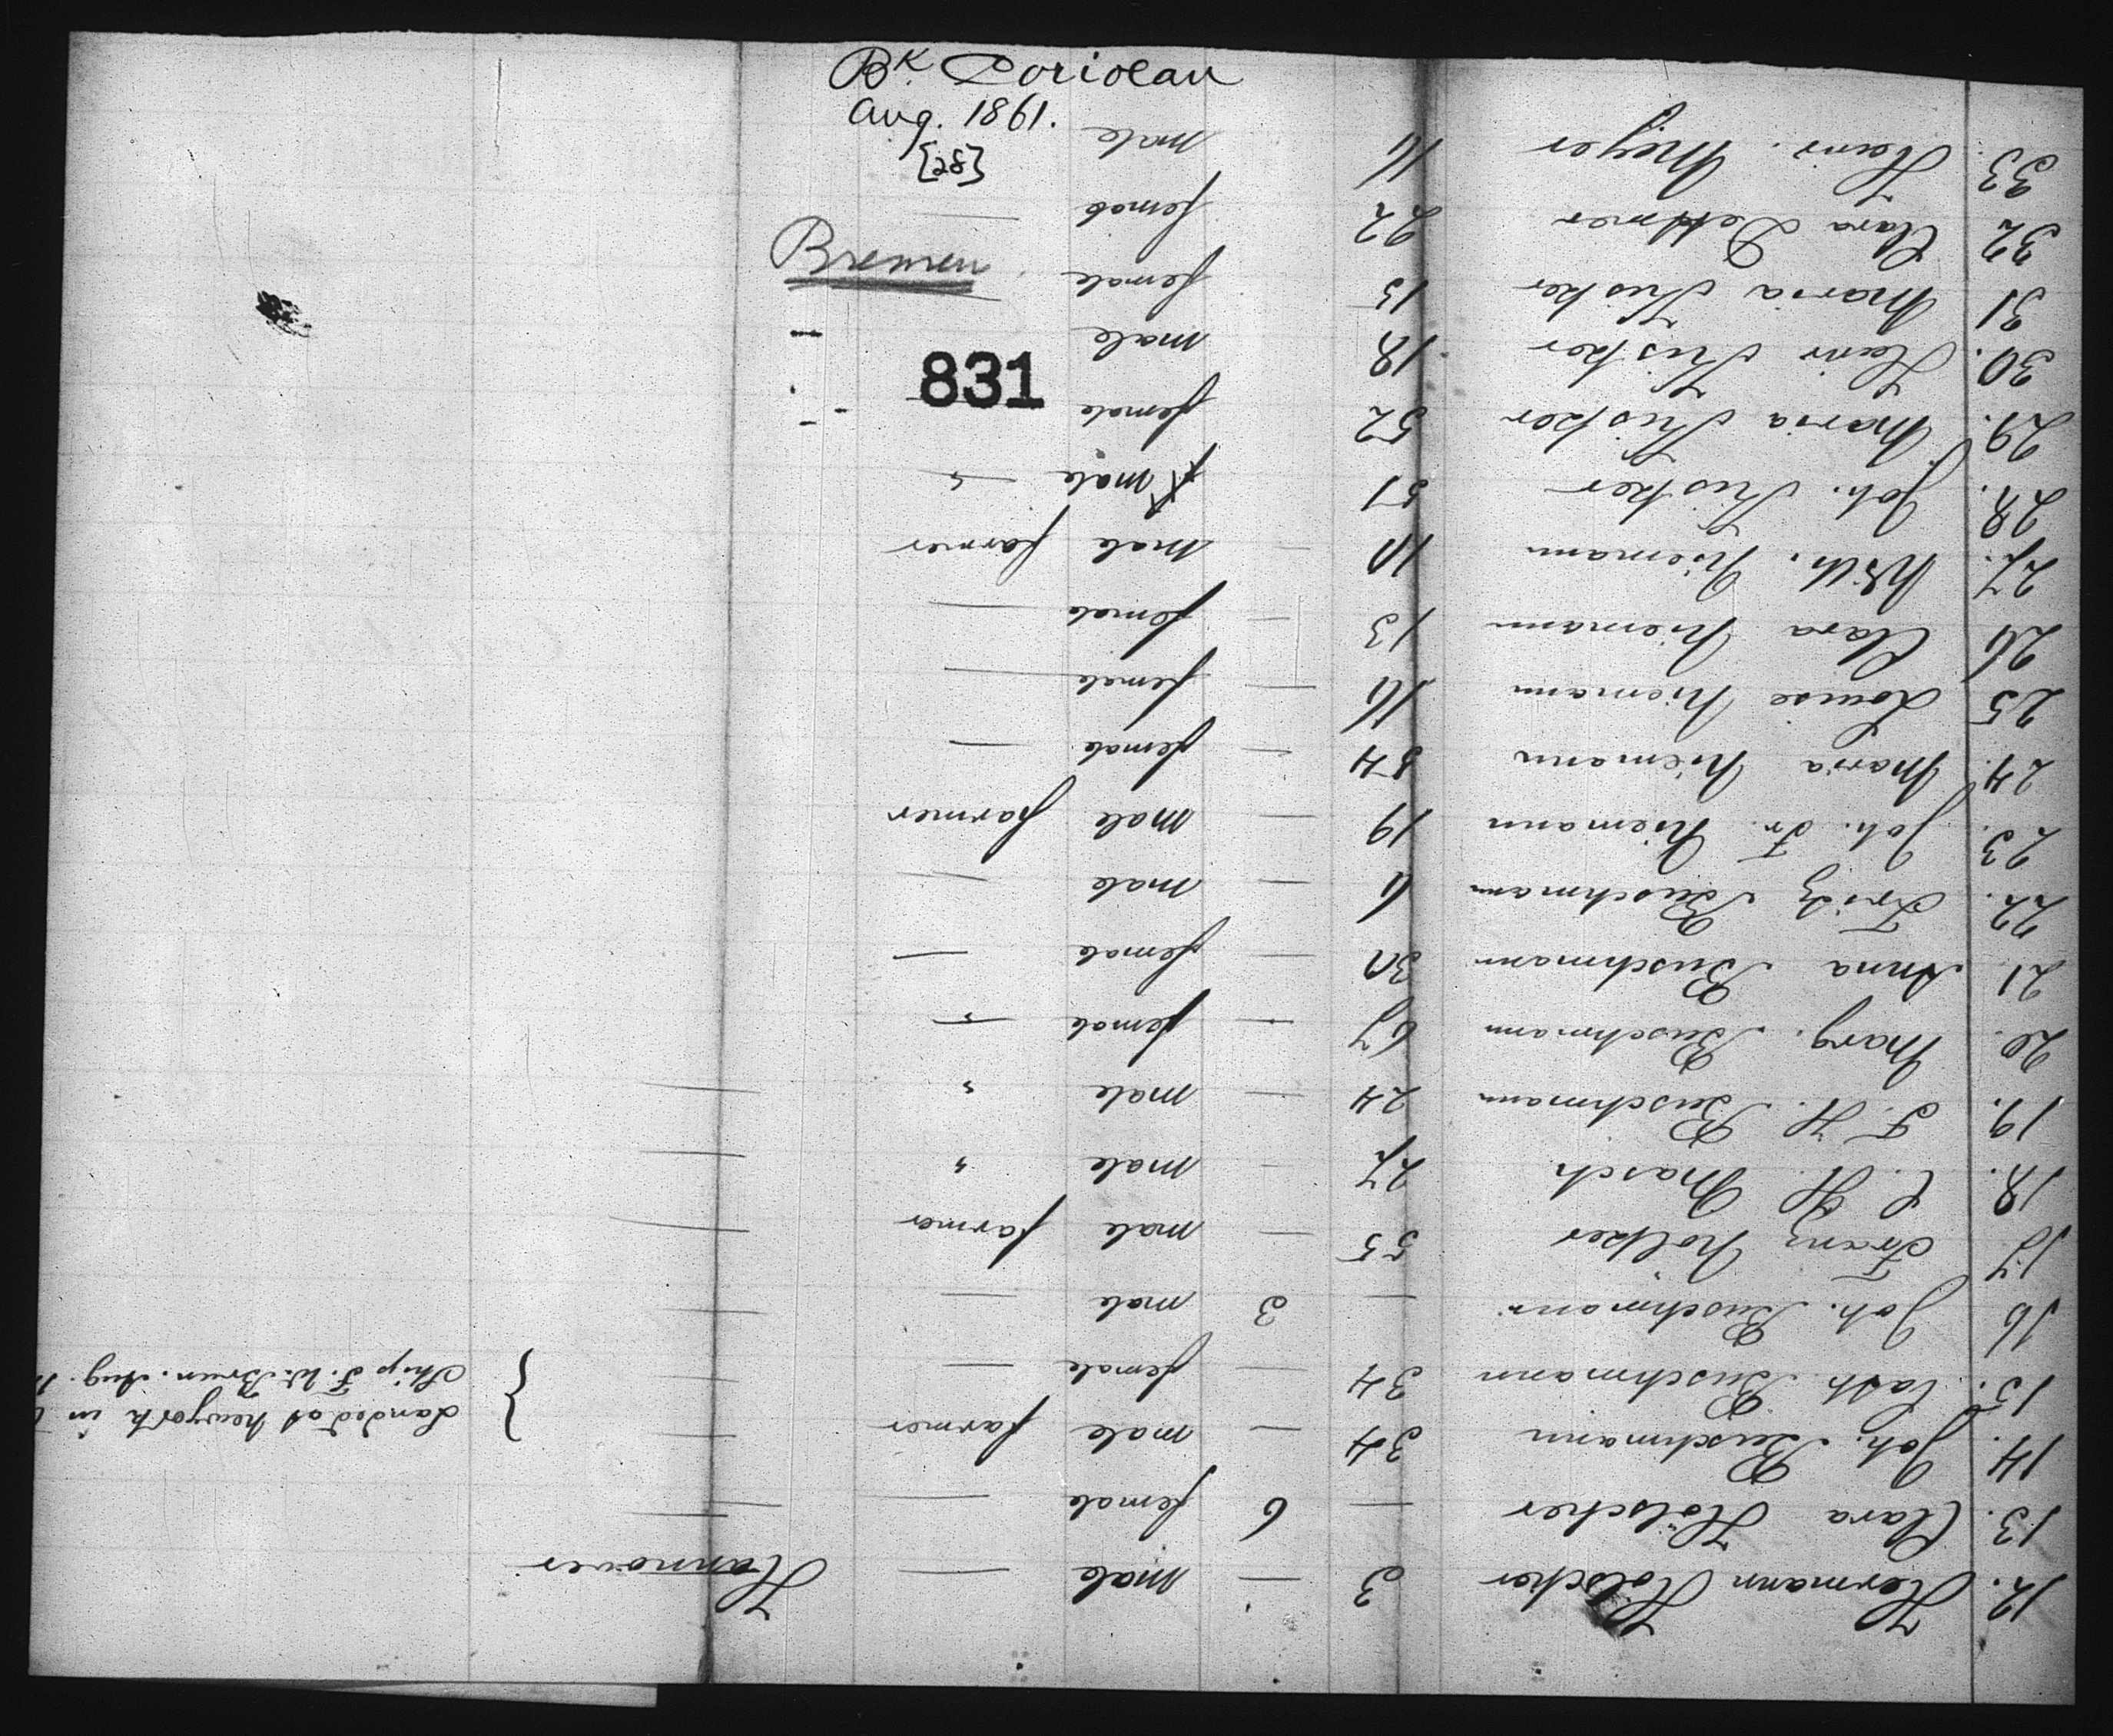 Bk. Coriolan
Aug. 1861.
[82]
Bremen
831
12. Hermann Hölscher 3 — male — Hannover
13. Clara Hölscher — 6 female — —
14. Joh. Buschmann 34 — male farmer —
Landed at Newyork in
15. Cath. Buschmann 34 — female — —
Ship F. W. Brun. Aug.
16 Joh. Buschmann. — 3 male — —
17 Franz Nölker 55 — male farmer —
18. C. H. Masch 27 — male " —
19. F. H. Buschmann 24 — male " —
20. Marg. Buschmann 67 — female —
21 Anna Buschmann 30 — female —
22. Fritz Buschmann 6 — male —
23. Joh. Fr. Niemann 19 — male farmer
24. Maria Niemann 54 — female —
25 Louise Niemann 16 — female —
26 Clara Niemann 13 — female —
27. Wilh. Niemann 10 — male farmer
28. Joh. Kisker 51 male "
29. Maria Kisker 52 female
30. Heinr Kisker 18 male
31 Maria Kisker 15 female —
32 Clara Dettmer 22 female —
33. Heinr. Meyer 16 male